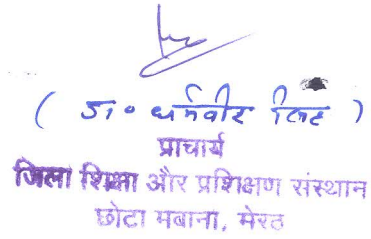 ( डा० धर्मवीर सिंह )
प्राचार्य
जिला शिक्षा और प्रशिक्षण संस्थान
छोटा मवाना, मेरठ